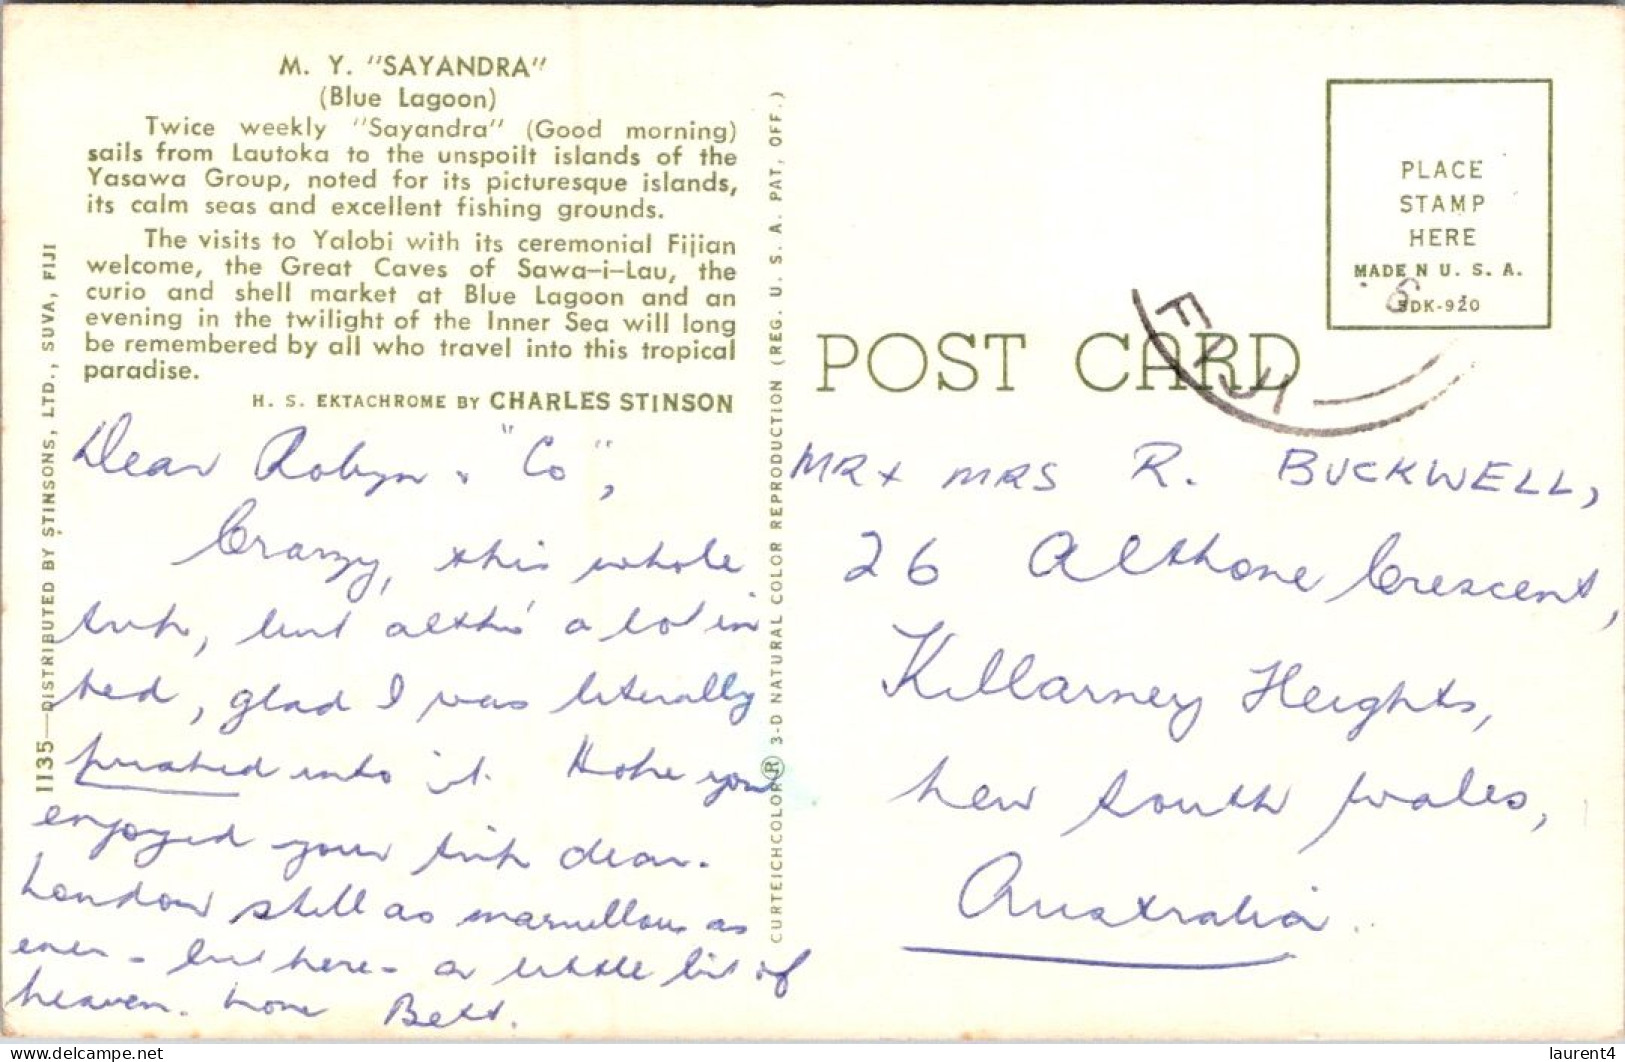 M. Y. "SAYANDRA"
(Blue Lagoon)
Twice weekly "Sayandra" (Good morning)
sails from Lautoka to the unspoilt islands of the
Yasawa Group, noted for its picturesque islands,
its calm seas and excellent fishing grounds.
The visits to Yalobi with its ceremonial Fijian
welcome, the Great Caves of Sawa-i-Lau, the
curio and shell market at Blue Lagoon and an
evening in the twilight of the Inner Sea will long
be remembered by all who travel into this tropical
paradise.
H. S. EKTACHROME BY CHARLES STINSON
1135—DISTRIBUTED BY STINSONS, LTD., SUVA, FIJI
Dear Robyn & "Co",
Crazy, this whole
trip, but altho' a lot in
bed, glad I was literally
pushed into it. Hope you
enjoyed your trip dear.
London still as marvellous as
ever - but here - a little bit of
heaven. Love Bett.
CURTEICHCOLOR® 3-D NATURAL COLOR REPRODUCTION (REG. U. S. A. PAT, OFF.)
POST CARD
PLACE
STAMP
HERE
MADE N U. S. A.
DK-920
FIJI
MR & MRS R. BUCKWELL,
26 Althone Crescent,
Killarney Heights,
New South Wales,
Australia.
laurent4